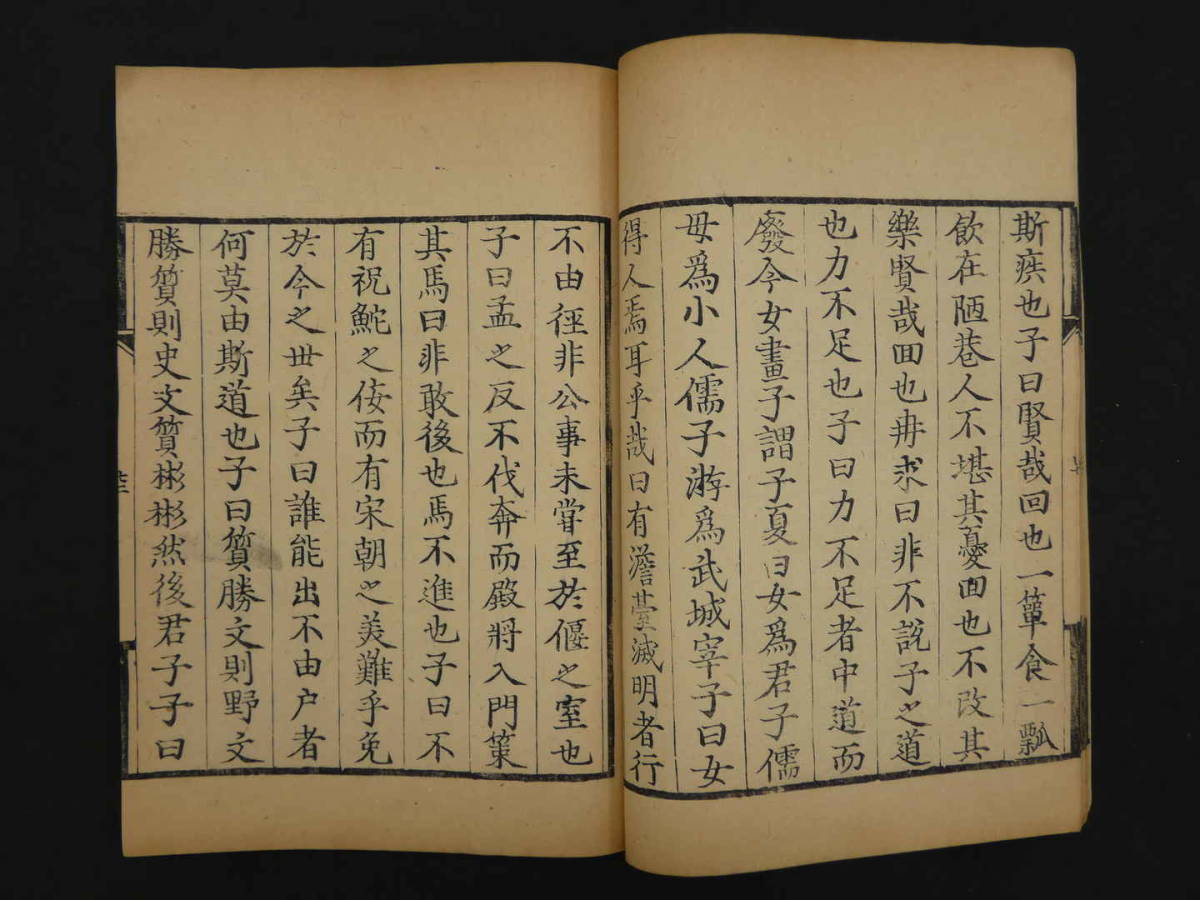 斯疾也子曰賢哉回也一簞食一瓢
飲在陋巷人不堪其憂回也不改其
樂賢哉回也冉求曰非不說子之道
也力不足也子曰力不足者中道而
廢今女畫子謂子夏曰女爲君子儒
毋爲小人儒子游爲武城宰子曰女
得人焉耳乎哉曰有澹臺滅明者行
不由徑非公事未嘗至於偃之室也
子曰孟之反不伐奔而殿將入門策
其馬曰非敢後也馬不進也子曰不
有祝鮀之侫而有宋朝之美難乎免
於今之世矣子曰誰能出不由户者
何莫由斯道也子曰質勝文則野文
勝質則史文質彬彬然後君子子曰